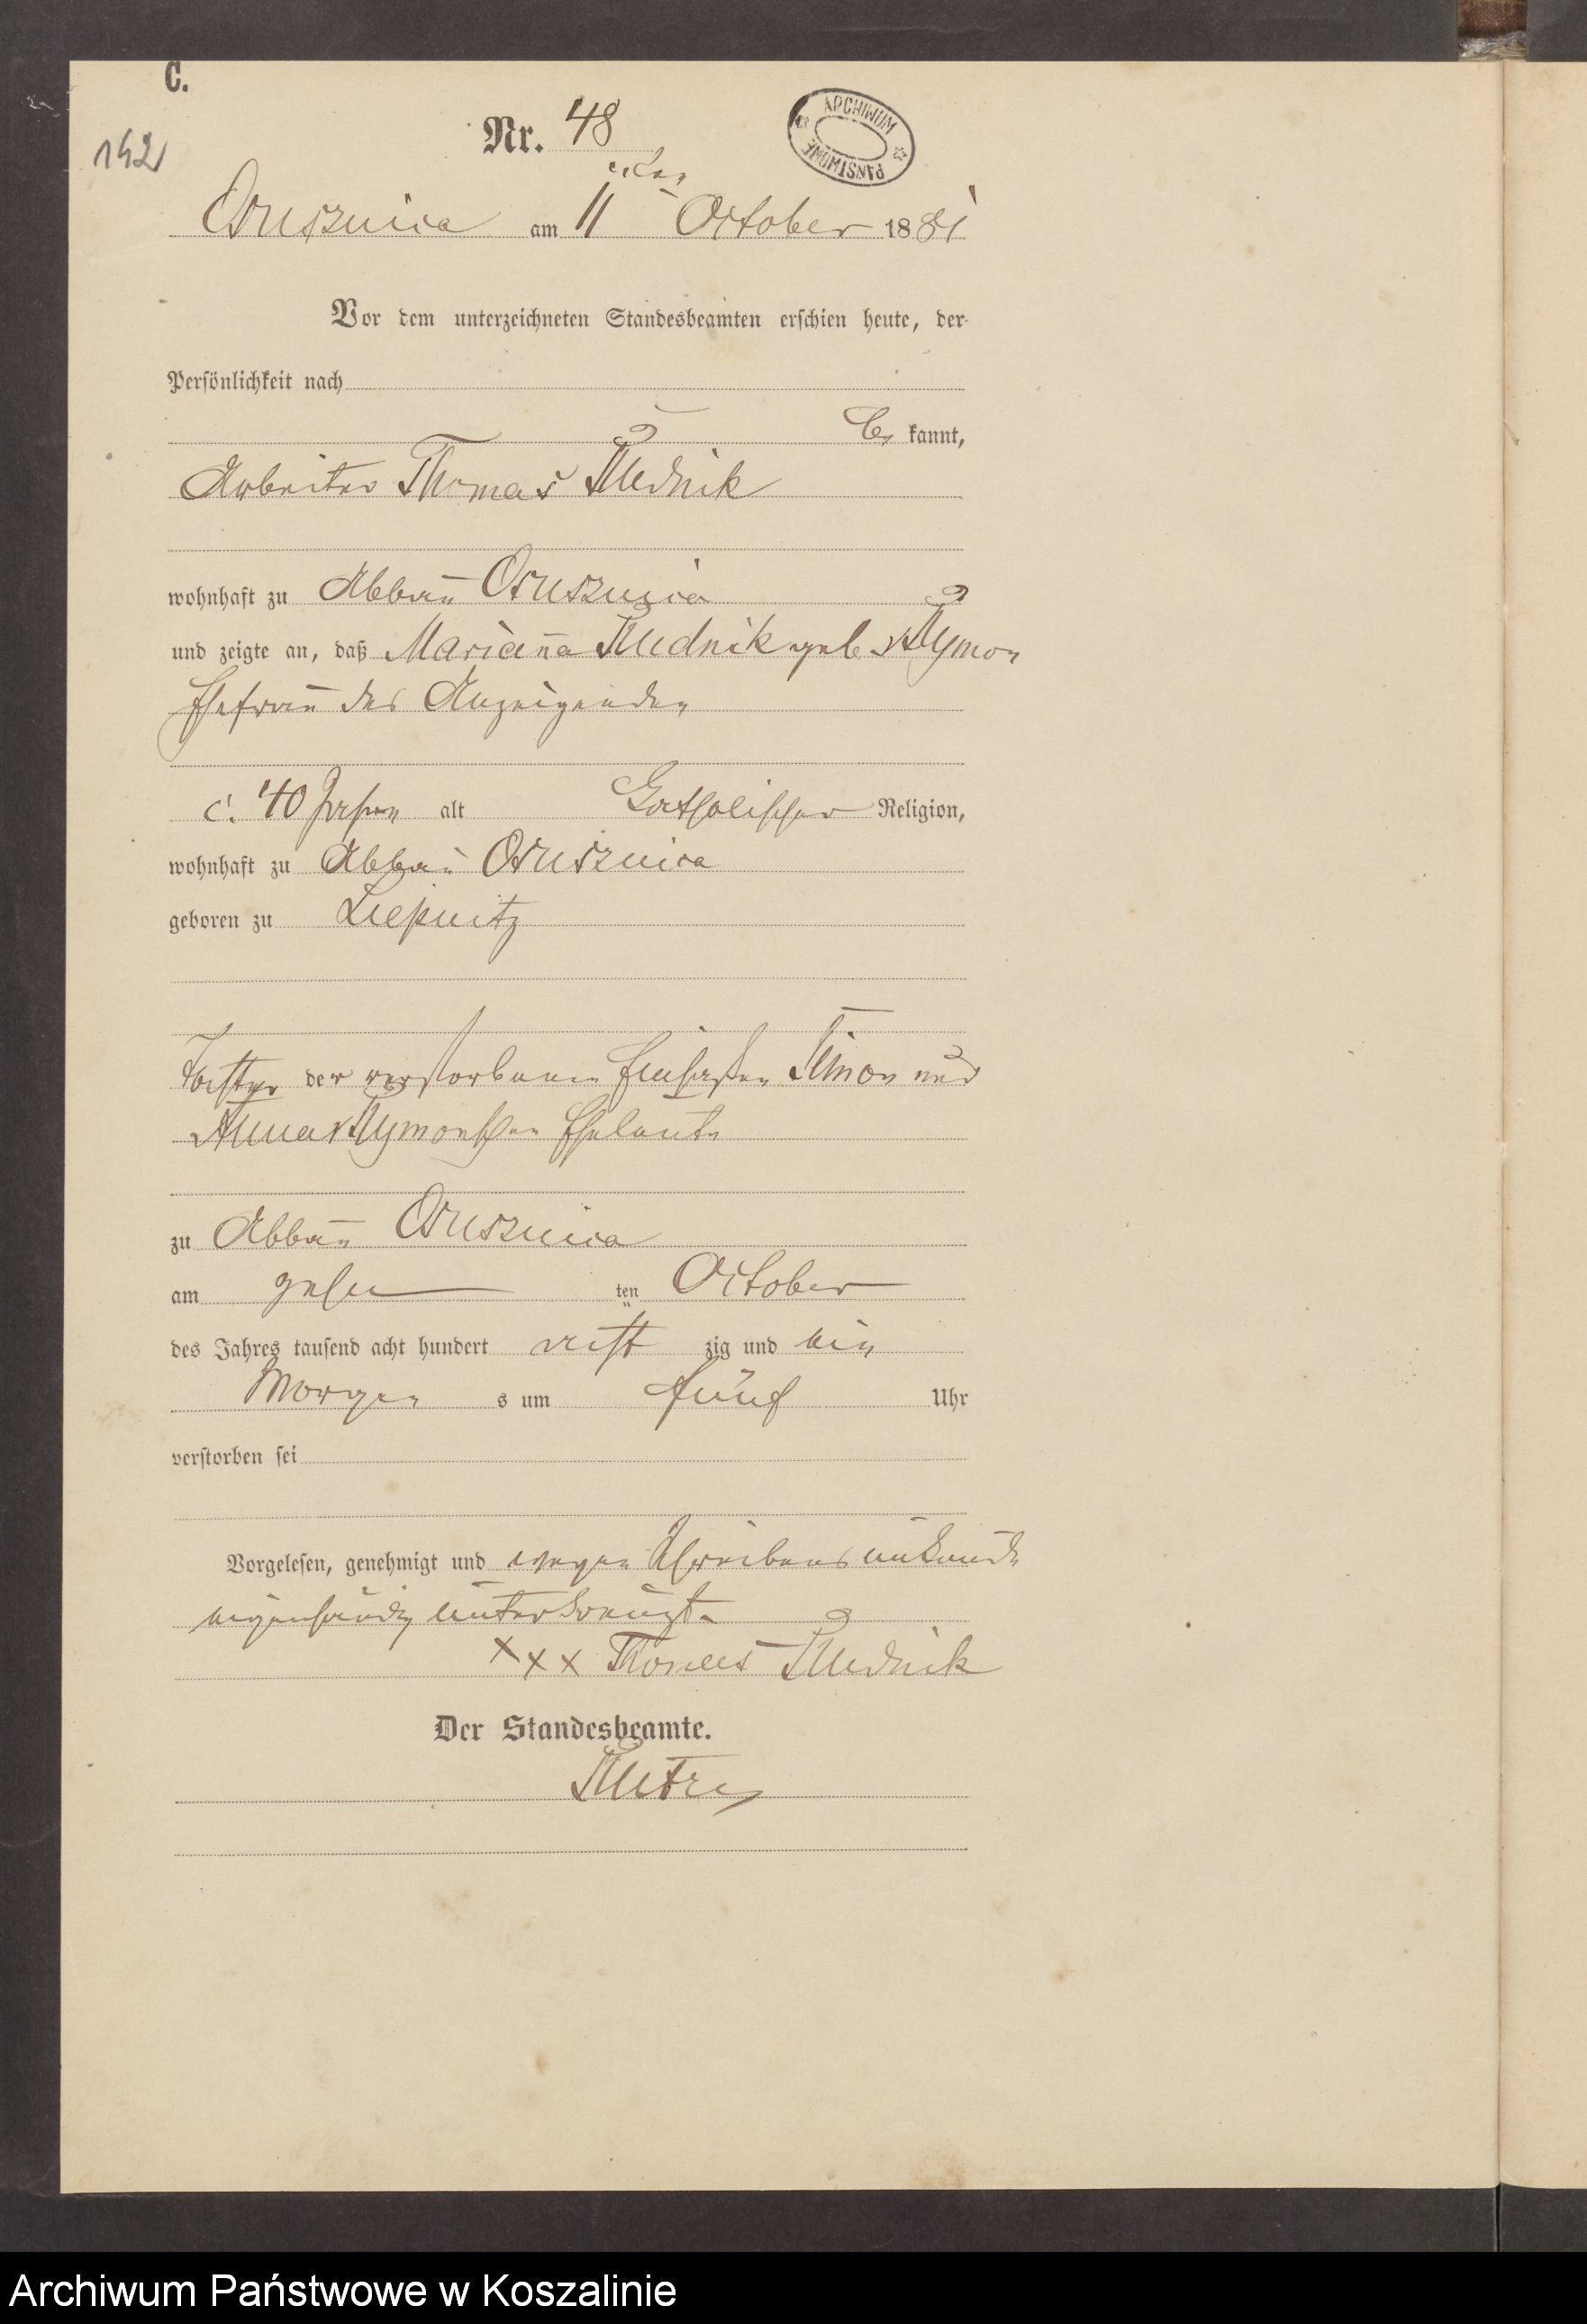 C.
142
Nr. 48
ARCHIWUM PAŃSTWOWE
Ossusznica am 11 ten October 1881
Vor dem unterzeichneten Standesbeamten erschien heute, der
Persönlichkeit nach
be kannt,
Arbeiter Thomas Rudnik
wohnhaft zu Abbau Ossusznica
und zeigte an, daß Marianna Rudnik geb
Ehefrau des Anzeigenden
c. 40 Jahren alt Catholischer Religion,
wohnhaft zu Abbau Ossusznica
geboren zu
Tochter der verstorbenen Einsaßen und
Anna Eheleute
zu Abbau Ossusznica
am zehn ten October
des Jahres tausend acht hundert acht zig und ein
Morgen s um fünf Uhr
verstorben sei
Vorgelesen, genehmigt und wegen Schreibens unkunde
eigenhändig unterkreuzt
xxx Thomas Rudnik
Der Standesbeamte.
Archiwum Państwowe w Koszalinie